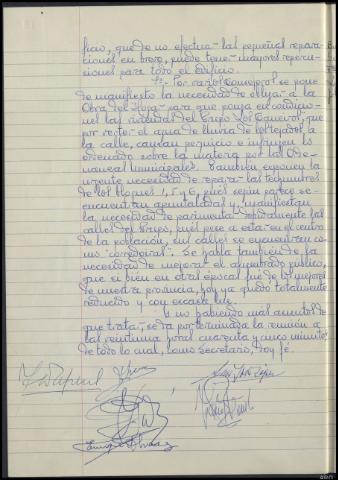 ficio, que de no efectuar las pequeñas repara-
ciones en breve, puede tener mayores repercu-
siones para todo el edificio.
Por varios Consejeros se pone
de manifiesto la necesidad de obligar a la
Obra del Hogar para que ponga en condicio-
nes las viviendas del Grupo
por verter el agua de lluvia de los tejados a
la calle, causan perjuicio e infringen lo
ordenado sobre la materia por las Orde-
nanzas Municipales. También exponen la
urgente necesidad de reparar las techumbres
de los bloques 1, 5 y 6, pues según parece se
encuentran apuntaladas y, manifiestan
la necesidad de pavimentar debidamente las
calles del Grupo, pues pese a estar en el centro
de la población, sus calles se encuentran co-
mo "corredoiras". Se habla también de la
necesidad de mejorar el alumbrado público,
que si bien en otra época fue de los mejores
de nuestra provincia, hoy ya quedó totalmente
reducido y con escasa luz.
Y no habiendo más asuntos de
que tratar, se da por terminada la reunión a
las veintiuna horas cuarenta y cinco minutos
de todo lo cual, como Secretario, doy fé.